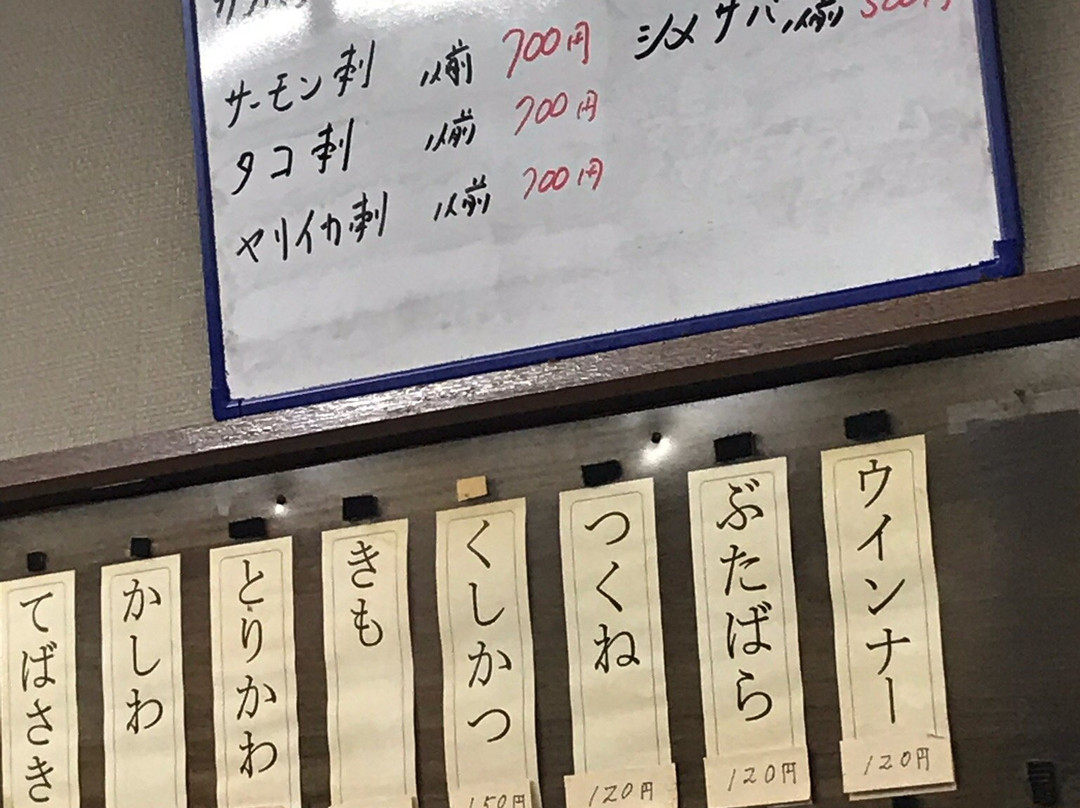 サーモン刺 1人前 700円
シメサバ 1人前
タコ刺 1人前 700円
ヤリイカ刺 1人前 700円
ウインナー
120円
ぶたばら
120円
つくね
120円
くしかつ
150円
きも
とりかわ
かしわ
てばさき